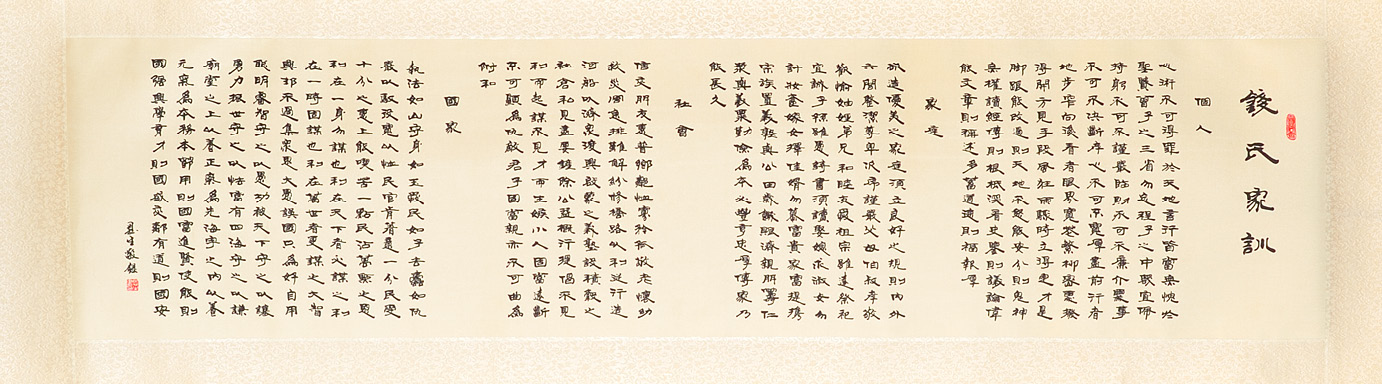 錢氏家訓
個人
心術不可得罪於天地言行皆當無愧於
聖賢曾子之三省勿忘程子之中箴宜佩
持躬不可不謹嚴臨財不可不廉介處事
不可不決斷存心不可不寬厚盡前行者
地步窄向後看者眼界寬花繁柳密處撥
得開方見手段風狂雨驟時立得定才是
腳跟能改過則天地不怒能安分則鬼神
無權讀經傳則根柢深看史鑒則議論偉
能文章則稱述多蓄道德則福報厚
家庭
欲造優美之家庭須立良好之規則內外
六閭整潔尊卑次序謹嚴父母伯叔孝敬
歡愉妯娌弟兄和睦友愛祖宗雖遠祭祀
宜誠子孫雖愚詩書須讀娶媳求淑女勿
計妝奩嫁女擇佳婿勿慕富貴家富提攜
宗族置義塾與公田歲饑賑濟親朋籌仁
漿與義粟勤儉為本必豐亨忠厚傳家乃
能長久
社會
信交朋友惠普鄉鄰恤寡矜孤敬老懷幼
救災周急排難解紛修橋路以利從行造
河船以濟眾渡興啟蒙之義塾設積穀之
社倉私見盡要鏟除公益概行提倡不見
利而起謀不見才而生嫉小人固當遠斷
不可顯為仇敵君子固當親亦不可曲為
附和
國家
執法如山守身如玉愛民如子去蠹如仇
嚴以馭役寬以恤民官肯著意一分民受
十分之惠上能喫苦一點民沾萬點之恩
利在一身勿謀也利在天下者必謀之利
在一時固謀也利在萬世者更謀之大智
興邦不過集眾思大愚誤國只為好自用
聰明睿智守之以愚功被天下守之以讓
勇力振世守之以怯富有四海守之以謙
廟堂之上以養正氣為先海宇之內以養
元氣為本務本節用則國富進賢使能則
國強興學育才則國盛交鄰有道則國安
生敬錄